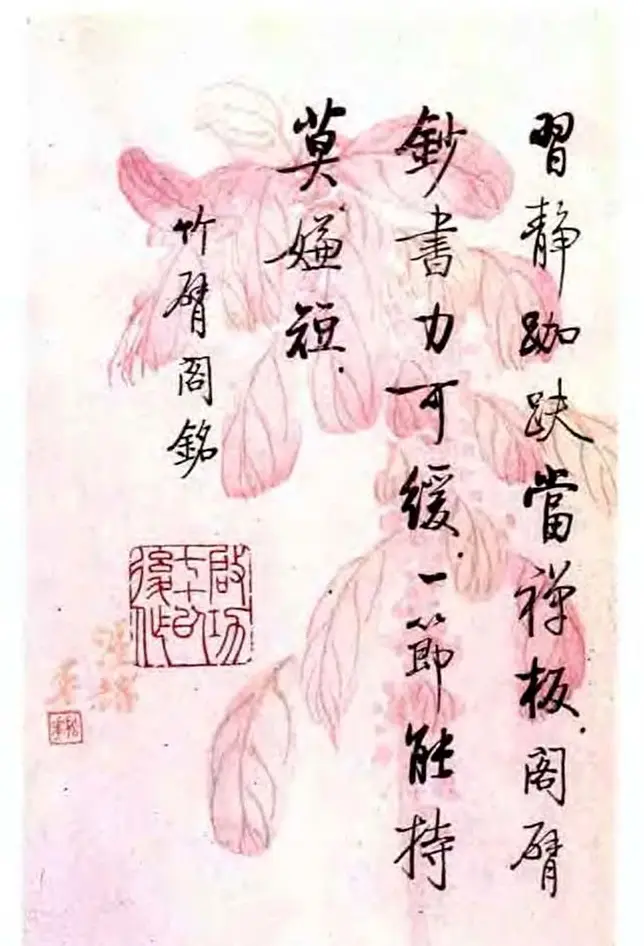 習静跏趺當禅板.閣臂
鈔書力可緩.一節能持
莫嫌短.
竹臂閣銘
啟功
七十以
後作